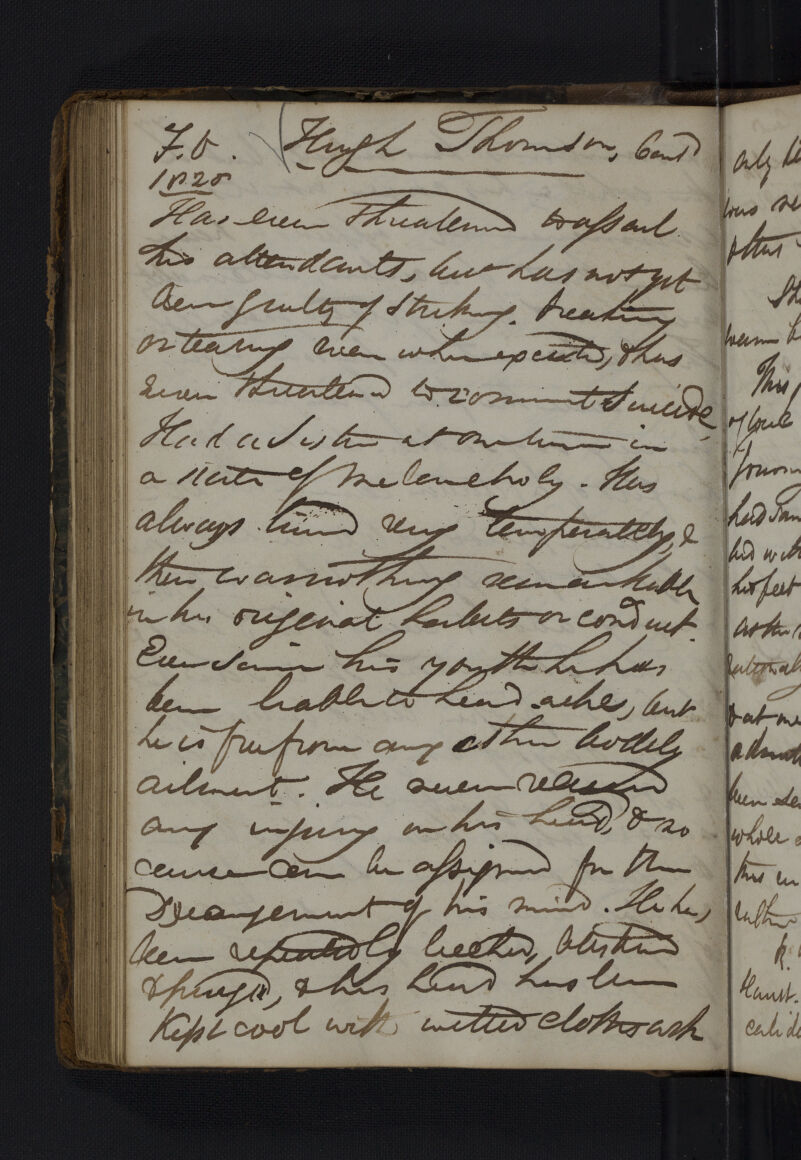 Hugh Thomson, Contd
1828
Has even threatened to assail
his attendants, but has not yet
been guilty of striking, breaking
or tearing even when excited, & has
even threatened to commit Suicide.
Had a Sister at one time in
a state of Melancholy. Has
always lived very temperately, &
there was nothing remarkable
in his original habits or conduct.
Ever since his youth he has
been liable to head aches, but
he is free from any other bodily
ailment. He never received
any injury on his head, & no
cause can be assigned for the
Derangement of his mind. He has
been repeatedly leeched, blistered
& purged, & his head has been
Kept cool with wetted cloths

only
was
others
warm
This

had
his feet

rationally
& at

been
whole
this
rather
R.
Haust.